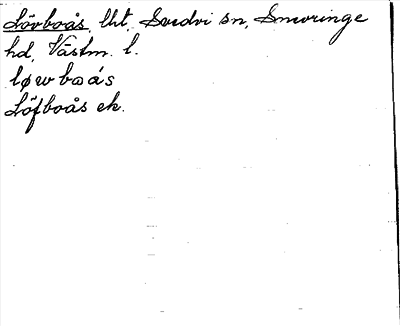 Lövboås, lht, Svedvi sn, Snevringe
hd, Västm. l.
løwboås
Löfboås ek.